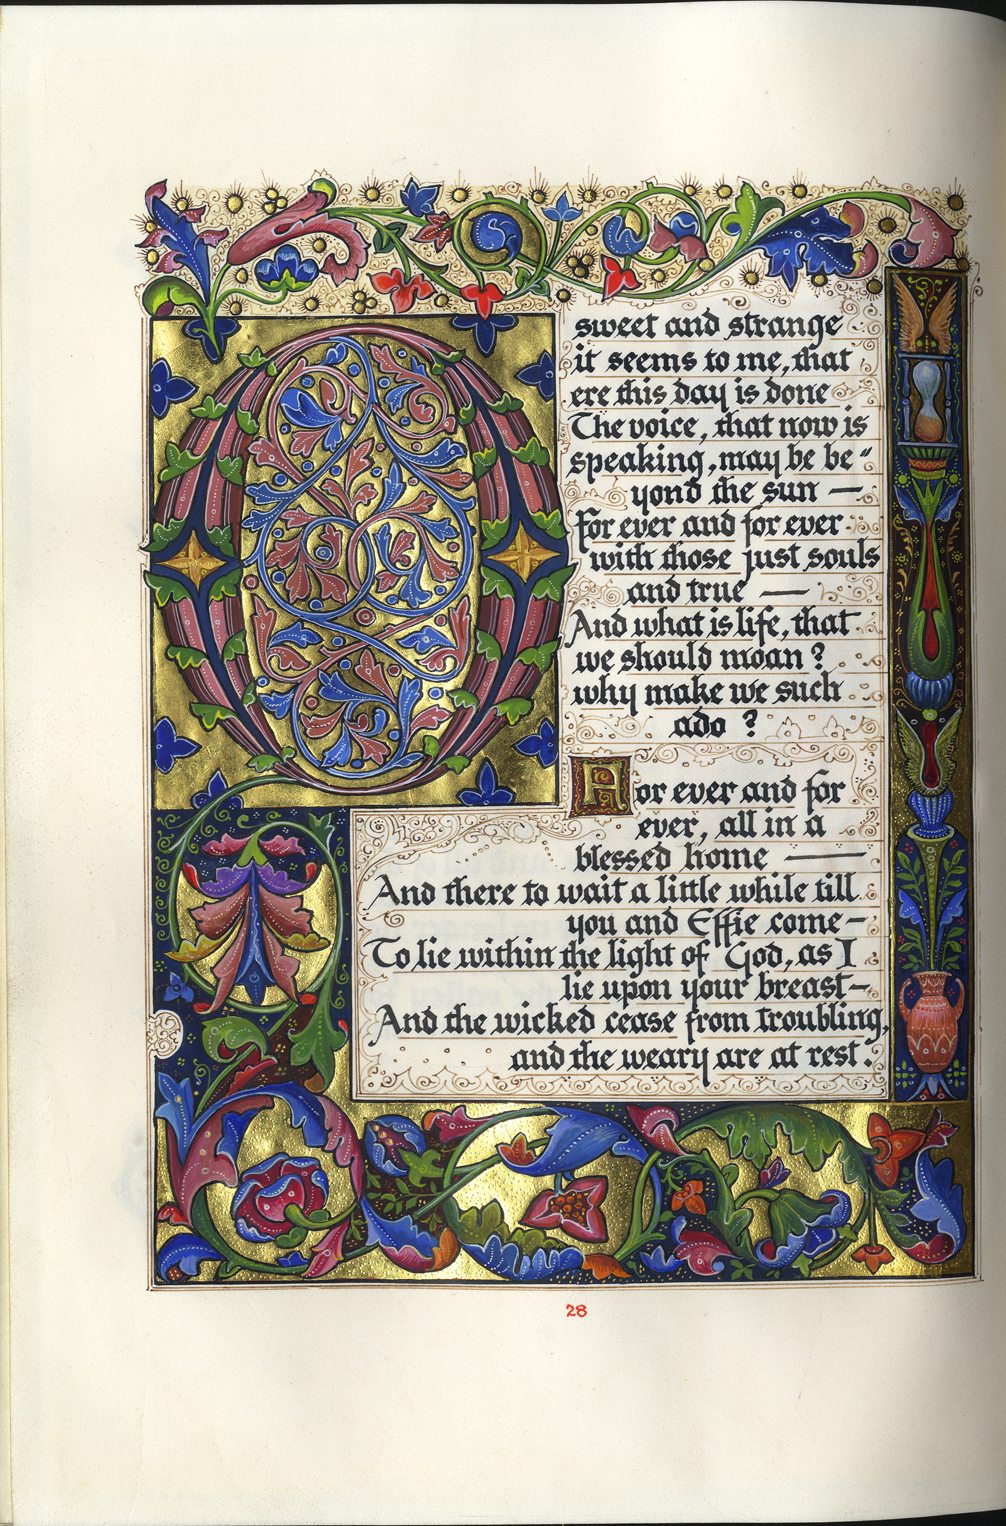 O sweet and strange
it seems to me, that
ere this day is done
The voice, that now is
speaking, may be be"
yond the sun —
For ever and for ever
with those just souls
and true —
And what is life, that
we should moan?
why make we such
ado?
For ever and for
ever, all in a
blessed home —
And there to wait a little while till
you and Effie come —
To lie within the light of God, as I
lie upon your breast —
And the wicked cease from troubling,
and the weary are at rest.
28